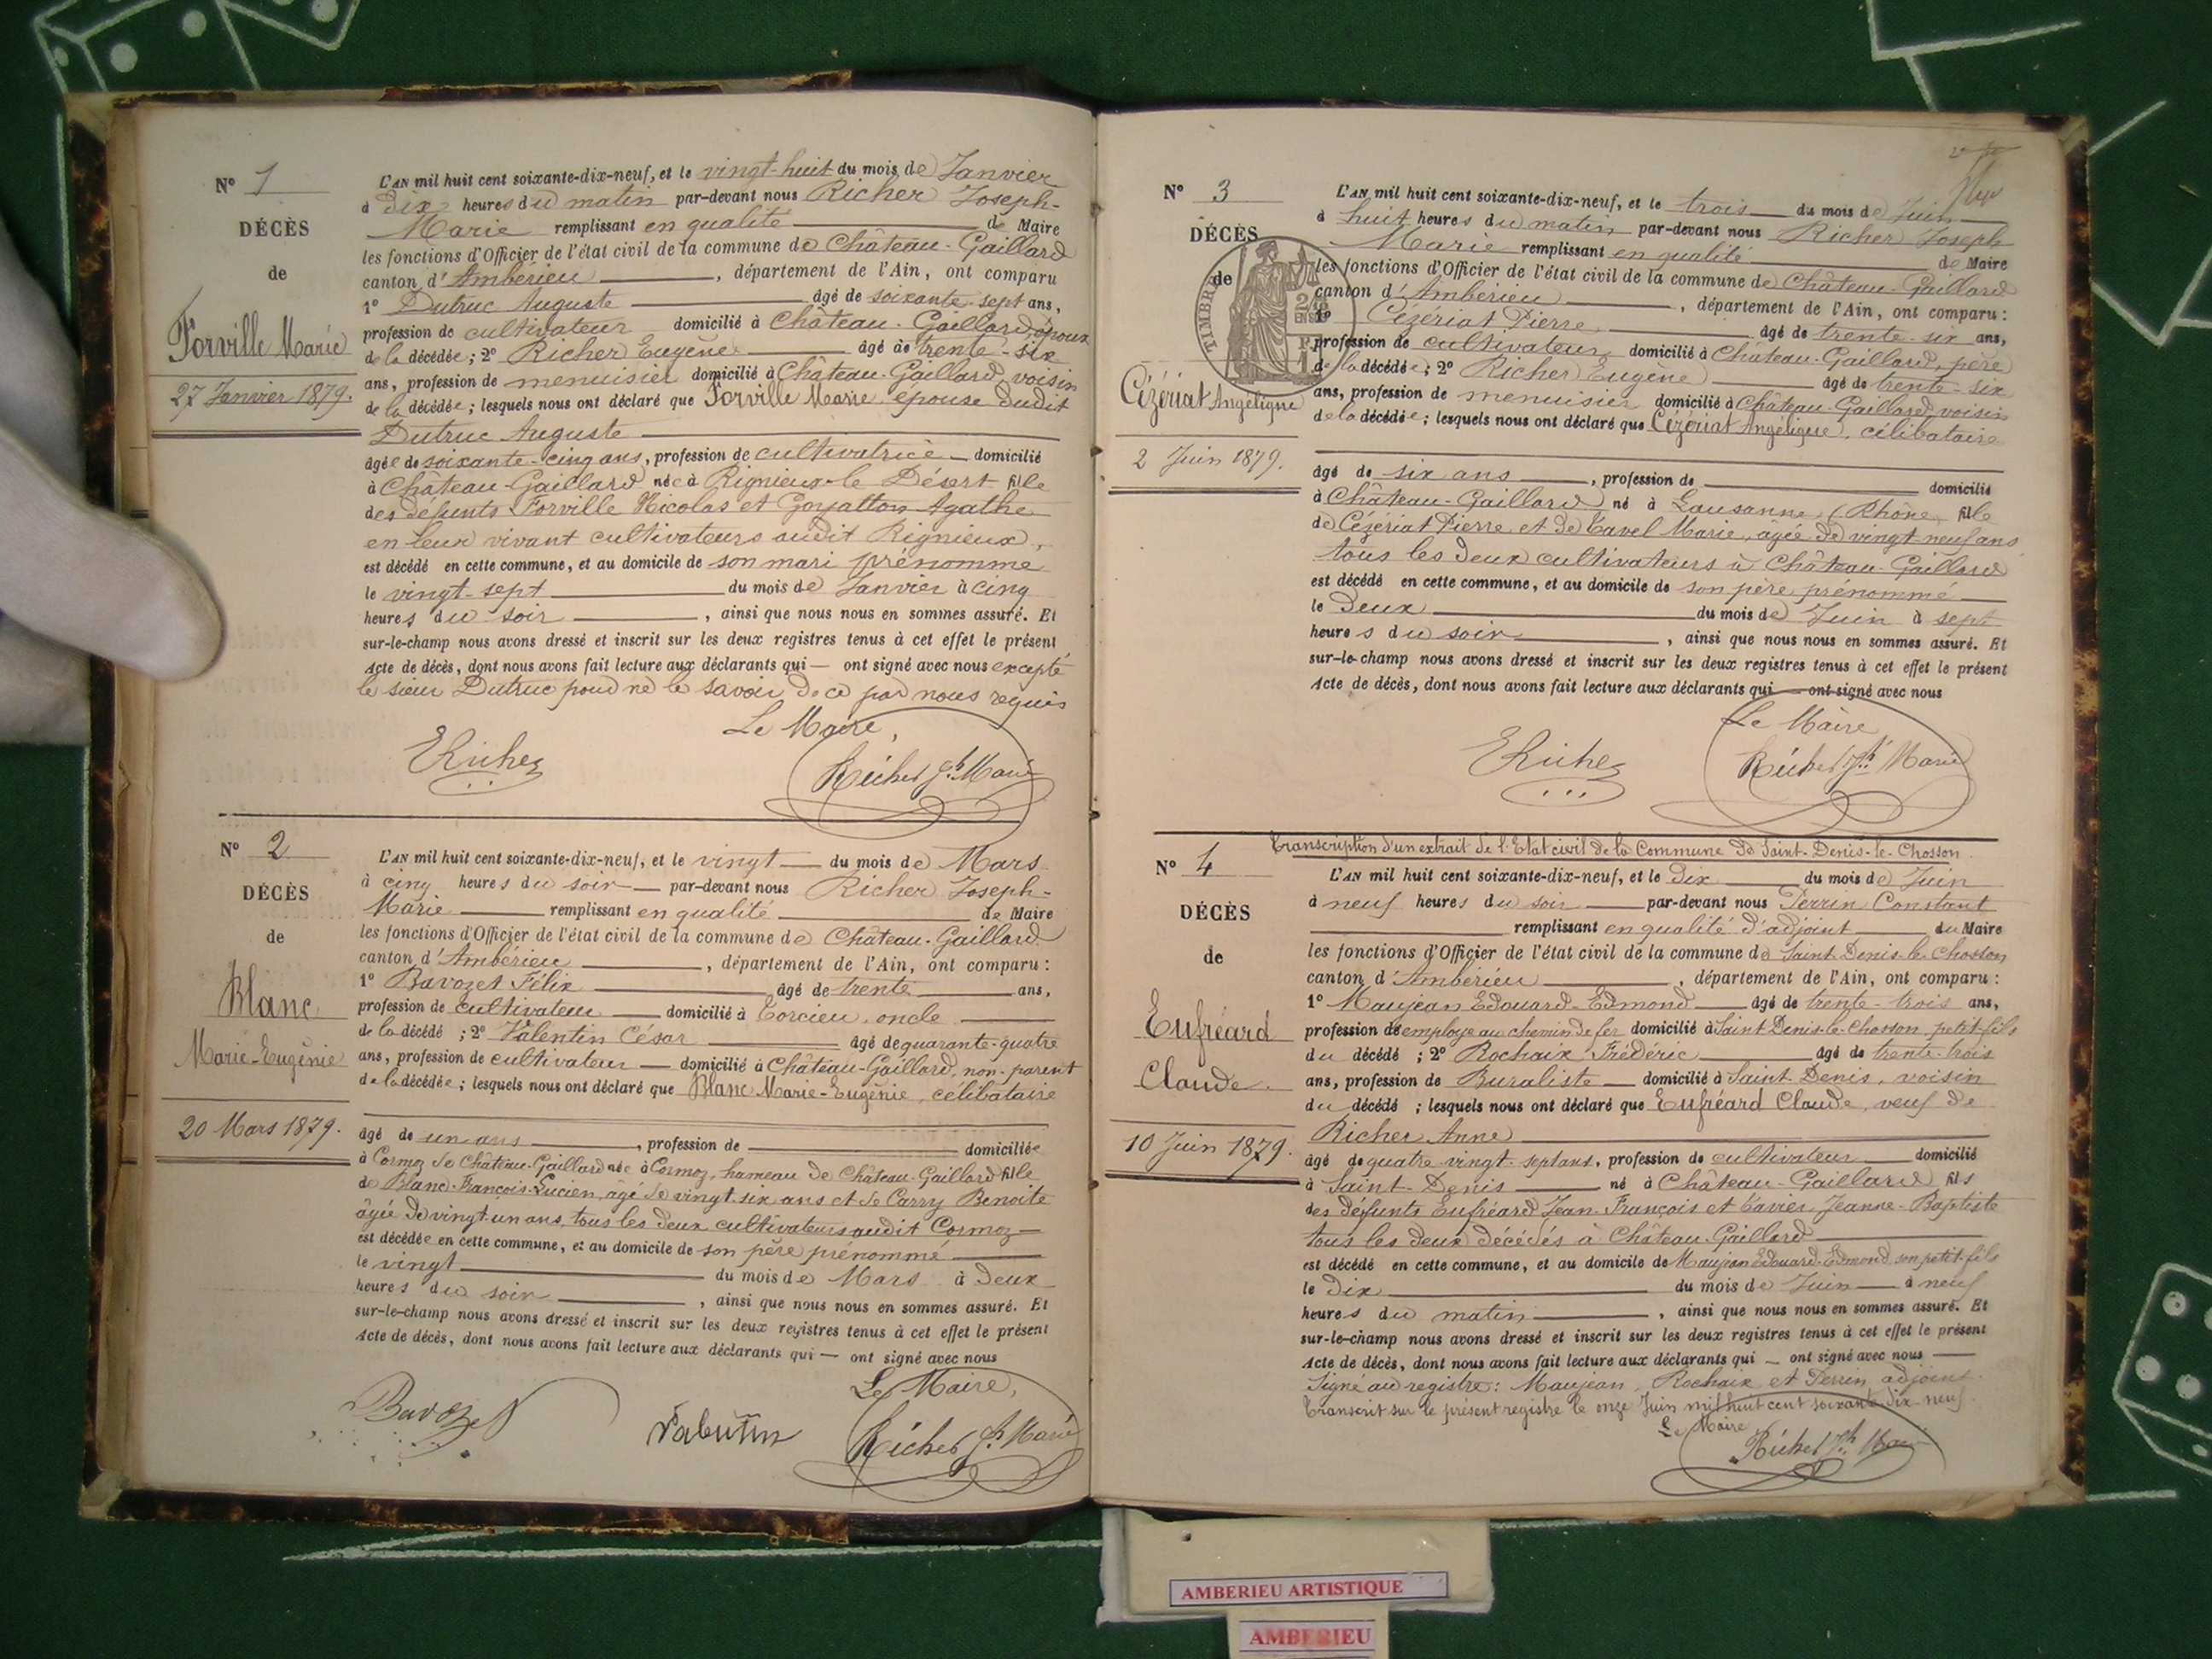 N° 1
DÉCÈS
de
Forville Marie
27 Janvier 1879.
L'AN mil huit cent soixante-dix-neuf, et le vingt-huit du mois de Janvier
à dix heures du matin par-devant nous Richer Joseph-
Marie remplissant en qualité de Maire
les fonctions d'Officier de l'état civil de la commune de Château-Gaillard
canton d'Ambérieu, département de l'Ain, ont comparu
1° Dutruc Auguste âgé de soixante-sept ans,
profession de cultivateur domicilié à Château-Gaillard, époux
de la décédée; 2° Richer Eugène âgé de trente-six
ans, profession de menuisier domicilié à Château-Gaillard, voisin
de la décédée; lesquels nous ont déclaré que Forville Marie épouse dudit
Dutruc Auguste
âgée de soixante-cinq ans, profession de cultivatrice domicilié
à Château-Gaillard née à Rignieux-le Désert fille
des défunts Forville Nicolas et Goyatton Agathe
en leur vivant cultivateurs audit Rignieux,
est décédé en cette commune, et au domicile de son mari prénommé
le vingt-sept du mois de Janvier à cinq
heures du soir, ainsi que nous nous en sommes assuré. Et
sur-le-champ nous avons dressé et inscrit sur les deux registres tenus à cet effet le présent
Acte de décès, dont nous avons fait lecture aux déclarants qui — ont signé avec nous excepté
le sieur Dutruc pour ne le savoir de ce par nous requis
Le Maire,
ERicher
Richer Jph Marie
N° 2
DÉCÈS
de
Blanc
Marie-Eugénie
20 Mars 1879.
L'AN mil huit cent soixante-dix-neuf, et le vingt du mois de Mars
à cinq heures du soir par-devant nous Richer Joseph-
Marie remplissant en qualité de Maire
les fonctions d'Officier de l'état civil de la commune de Château-Gaillard
canton d'Ambérieu, département de l'Ain, ont comparu :
1° Bavozet Félix âgé de trente ans,
profession de cultivateur domicilié à Torcieu, oncle
de la décédé ; 2° Valentin César âgé de quarante-quatre
ans, profession de cultivateur domicilié à Château-Gaillard, non-parent
de la décédée; lesquels nous ont déclaré que Blanc Marie-Eugénie, célibataire
âgé de un ans, profession de domiciliée
à Cormoz de Château-Gaillard née à Cormoz, hameau de Château-Gaillard fille
de Blanc-François-Lucien, âgé de vingt-six ans et de Carry Benoite
âgée de vingt-un ans, tous les deux cultivateurs audit Cormoz
est décédée en cette commune, et au domicile de son père prénommé
le vingt du mois de Mars à deux
heures du soir, ainsi que nous nous en sommes assuré. Et
sur-le-champ nous avons dressé et inscrit sur les deux registres tenus à cet effet le présent
Acte de décès, dont nous avons fait lecture aux déclarants qui — ont signé avec nous
Le Maire,
Bavozet
Valentin
Richer Jph Marie
N° 3
DÉCÈS
de
TIMBRE
Cézériat Angélique
2 Juin 1879.
L'AN mil huit cent soixante-dix-neuf, et le trois du mois de Juin
à huit heures du matin par-devant nous Richer Joseph
Marie remplissant en qualité de Maire
les fonctions d'Officier de l'état civil de la commune de Château-Gaillard
canton d'Ambérieu, département de l'Ain, ont comparu :
1° Cézériat Pierre âgé de trente-six ans,
profession de cultivateur domicilié à Château-Gaillard, père
de la décédé; 2° Richer Eugène âgé de trente-six
ans, profession de menuisier domicilié à Château-Gaillard, voisin
de la décédée; lesquels nous ont déclaré que Cézériat Angélique, célibataire
âgé de six ans, profession de domicilié
à Château-Gaillard né à Lausanne, (Rhône, fille
de Cézériat Pierre et de Tavel Marie, âgée de vingt neuf ans
tous les deux cultivateurs à Château-Gaillard
est décédé en cette commune, et au domicile de son père prénommé
le deux du mois de Juin à sept
heures du soir, ainsi que nous nous en sommes assuré. Et
sur-le-champ nous avons dressé et inscrit sur les deux registres tenus à cet effet le présent
Acte de décès, dont nous avons fait lecture aux déclarants qui — ont signé avec nous
Le Maire
ERicher
Richer Jph Marie
Transcription d'un extrait de l'Etat civil de la Commune de Saint-Denis-le-Chosson
N° 4
DÉCÈS
de
Eufréard
Claude
10 Juin 1879.
L'AN mil huit cent soixante-dix-neuf, et le dix du mois de Juin
à neuf heures du soir par-devant nous Perrin Constant
remplissant en qualité d'adjoint du Maire
les fonctions d'Officier de l'état civil de la commune de Saint-Denis-le-Chosson
canton d'Ambérieu, département de l'Ain, ont comparu :
1° Maujean Edouard-Edmond âgé de trente-trois ans,
profession de employé au chemin de fer domicilié à Saint Denis-le-Chosson, petit-fils
du décédé ; 2° Rochaix Frédéric âgé de trente-trois
ans, profession de Buraliste domicilié à Saint-Denis, voisin
du décédé ; lesquels nous ont déclaré que Eufréard Claude, veuf de
Richer Anne
âgé de quatre-vingt-sept ans, profession de cultivateur domicilié
à Saint-Denis né à Château-Gaillard fils
des défunts Eufréard Jean-François et Cavier Jeanne-Baptiste
tous les deux décédés à Château-Gaillard
est décédé en cette commune, et au domicile de Maujean Edouard-Edmond son petit-fils
le dix du mois de Juin à neuf
heures du matin, ainsi que nous nous en sommes assuré. Et
sur-le-champ nous avons dressé et inscrit sur les deux registres tenus à cet effet le présent
Acte de décès, dont nous avons fait lecture aux déclarants qui — ont signé avec nous
Signé au registre : Maujean, Rochaix et Perrin adjoint.
Transcrit sur le présent registre le onze Juin mil huit cent soixante dix-neuf
Le Maire
Richer Jph Marie
AMBERIEU ARTISTIQUE
AMBERIEU